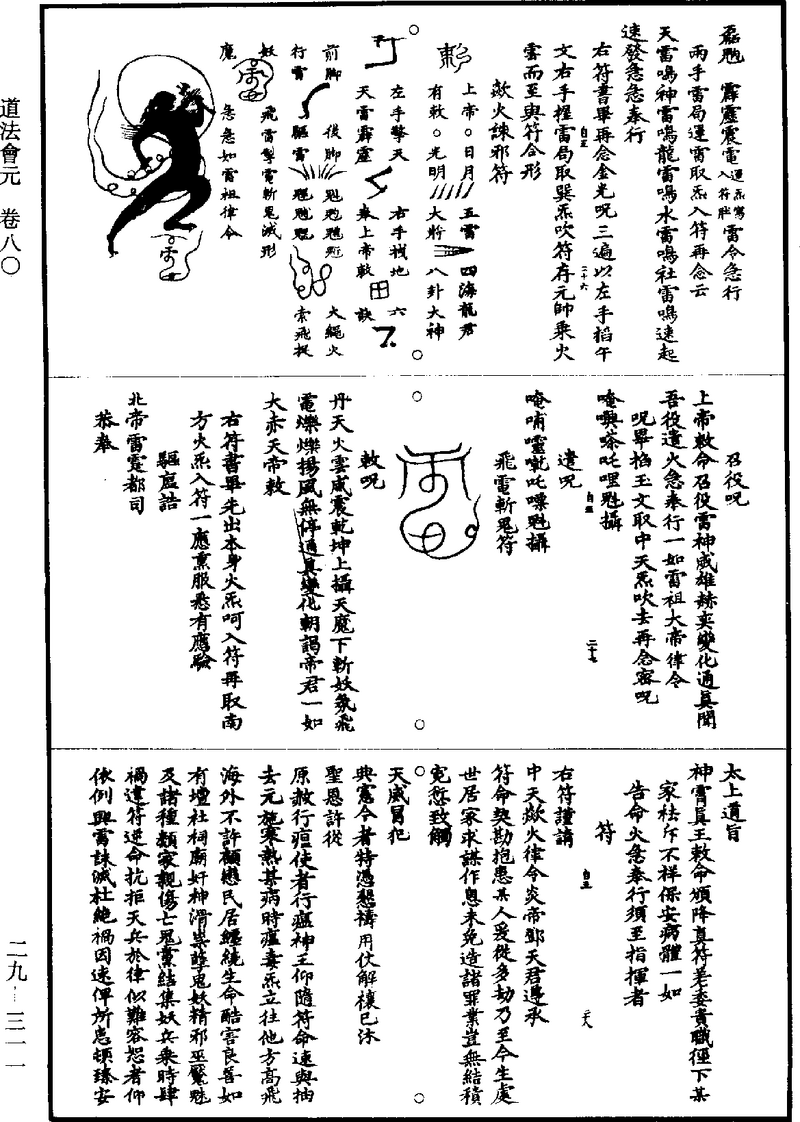 霹靂震電運炁寫入符膽雷令急行
兩手雷局運雷取炁入符再念云
天雷鳴神雷鳴龍雷鳴水雷鳴社雷鳴速起
速發急急奉行
右符書畢再念金光呪三遍以左手掐午
文右手揑雷局取巽炁吹符存元帥乘火
雲而至與符合形
歘火誅邪符
上帝 日月 五雷 四海龍君
有敕 光明 大將 八卦大神
左手擎天 右手托地 六
天雷霹靂 奉上帝敕 訣
前脚 後脚 大繩火
行雷 驅雷 索飛捉
妖 飛雷掣電斬鬼滅形
魔 急急如雷祖律令
召役呪
上帝敕命召役雷神威雄赫奕變化通真聞
吾役遣火急奉行一如雷祖大帝律令
呪畢掐玉文取中天炁吹去再念密呪
遣呪
飛電斬鬼符
二十七
敕呪
丹天火雲威震乾坤上攝天魔下斬妖氛飛
電爍爍揚風無停通真變化朝謁帝君一如
大赤天帝敕
右符書畢先出本身火炁呵入符再取南
方火炁入符一應熏服悉有應驗
驅瘟誥
北帝雷霆都司
恭奉
太上道旨
神霄真王敕命頒降真符差委責職徑下某
家祛斥不祥保安病體一如
告命火急奉行須至指揮者
符
右符謹請
中天歘火律令炎帝鄧天君遵承
符命契勘抱患某人爰從多劫乃至今生處
世居家求謀作息未免造諸罪業豈無結積
冤愆致觸
天威冒犯
典憲今者特憑懇禱用伏解禳已沐
聖恩許從
原赦行瘟使者行瘟神王仰隨符命速與抽
去元施寒熱某病時瘟毒炁立往他方高飛
海外不許顧戀民居纏繞生命酷害良善如
有壇社祠廟奸神滑鬼妖精邪巫魘魅
及諸種類家親傷亡鬼黨結集妖兵乘時肆
禍違符逆命抗拒天兵於律似難容恕者仰
依例興雷誅滅杜絕禍因速俾所患頓臻安
道法會元 卷八〇
二九–三一一